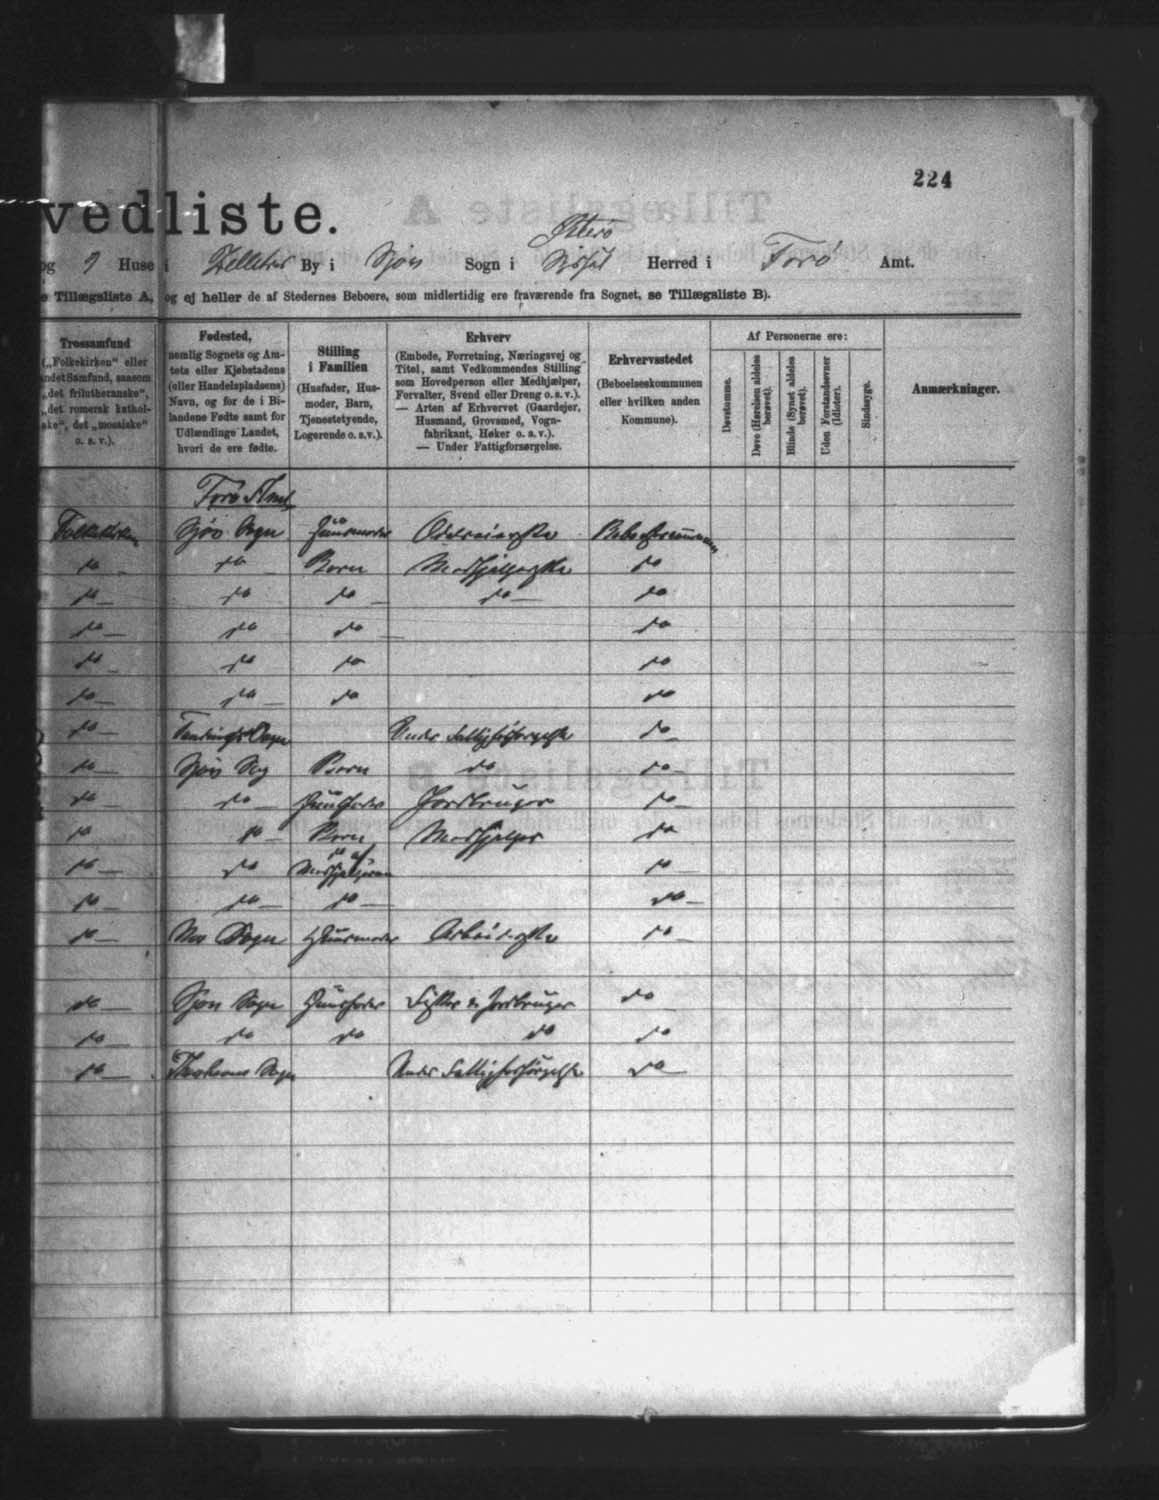 224
vedliste.
Østerø
og 9 Huse i Zelletræ By i Sjov Sogn i Syssel Herred i Færø Amt.
e Tillægsliste A, og ej heller de af Stedernes Beboere, som midlertidig ere fraværende fra Sognet, se Tillægsliste B).
Trossamfund
(„Folkekirken“ eller
andet Samfund, saasom
„det frilutheranske“,
„det romersk kathol-
ske“, det „mosaiske“
o. s. v.).
Fødested,
nemlig Sognets og Am-
tets eller Kjøbstadens
(eller Handelspladsens)
Navn, og for de i Bi-
landene Fødte samt for
Udlændinge Landet,
hvori de ere fødte.
Stilling
i Familien
(Husfader, Hus-
moder, Barn,
Tjenestetyende,
Logerende o. s. v.).
Erhverv
(Embede, Forretning, Næringsvej og
Titel, samt Vedkommendes Stilling
som Hovedperson eller Medhjælper,
Forvalter, Svend eller Dreng o. s. v.).
— Arten af Erhvervet (Gaardejer,
Husmand, Grovsmed, Vogn-
fabrikant, Høker o. s. v.).
— Under Fattigforsørgelse.
Erhvervsstedet
(Beboelseskommunen
eller hvilken anden
Kommune).
Af Personerne ere:
Døvstumme.
Døve (Hørelsen aldeles
berøvet).
Blinde (Synet aldeles
berøvet).
Uden Forstandsevner
(Idioter).
Sindssyge.
Anmærkninger.
Færø Amt
Folkekirken Sjov Sogn Huusmoder
do do Barn do
do do do do do
do do do do
do do do do
do do do do
do Sogn Under Fattigforsørgelse do
do Sjov Sog Barn do do
do do Huusfader Jordbruger do
do do Barn Medhjelper do
do do do
do do do do
do Nes Sogn Huusmoder do
do Sjov Sogn Huusfader Fisker og Jordbruger do
do do do do do
do Thorshavns Sogn Under Fattigforsørgelse do